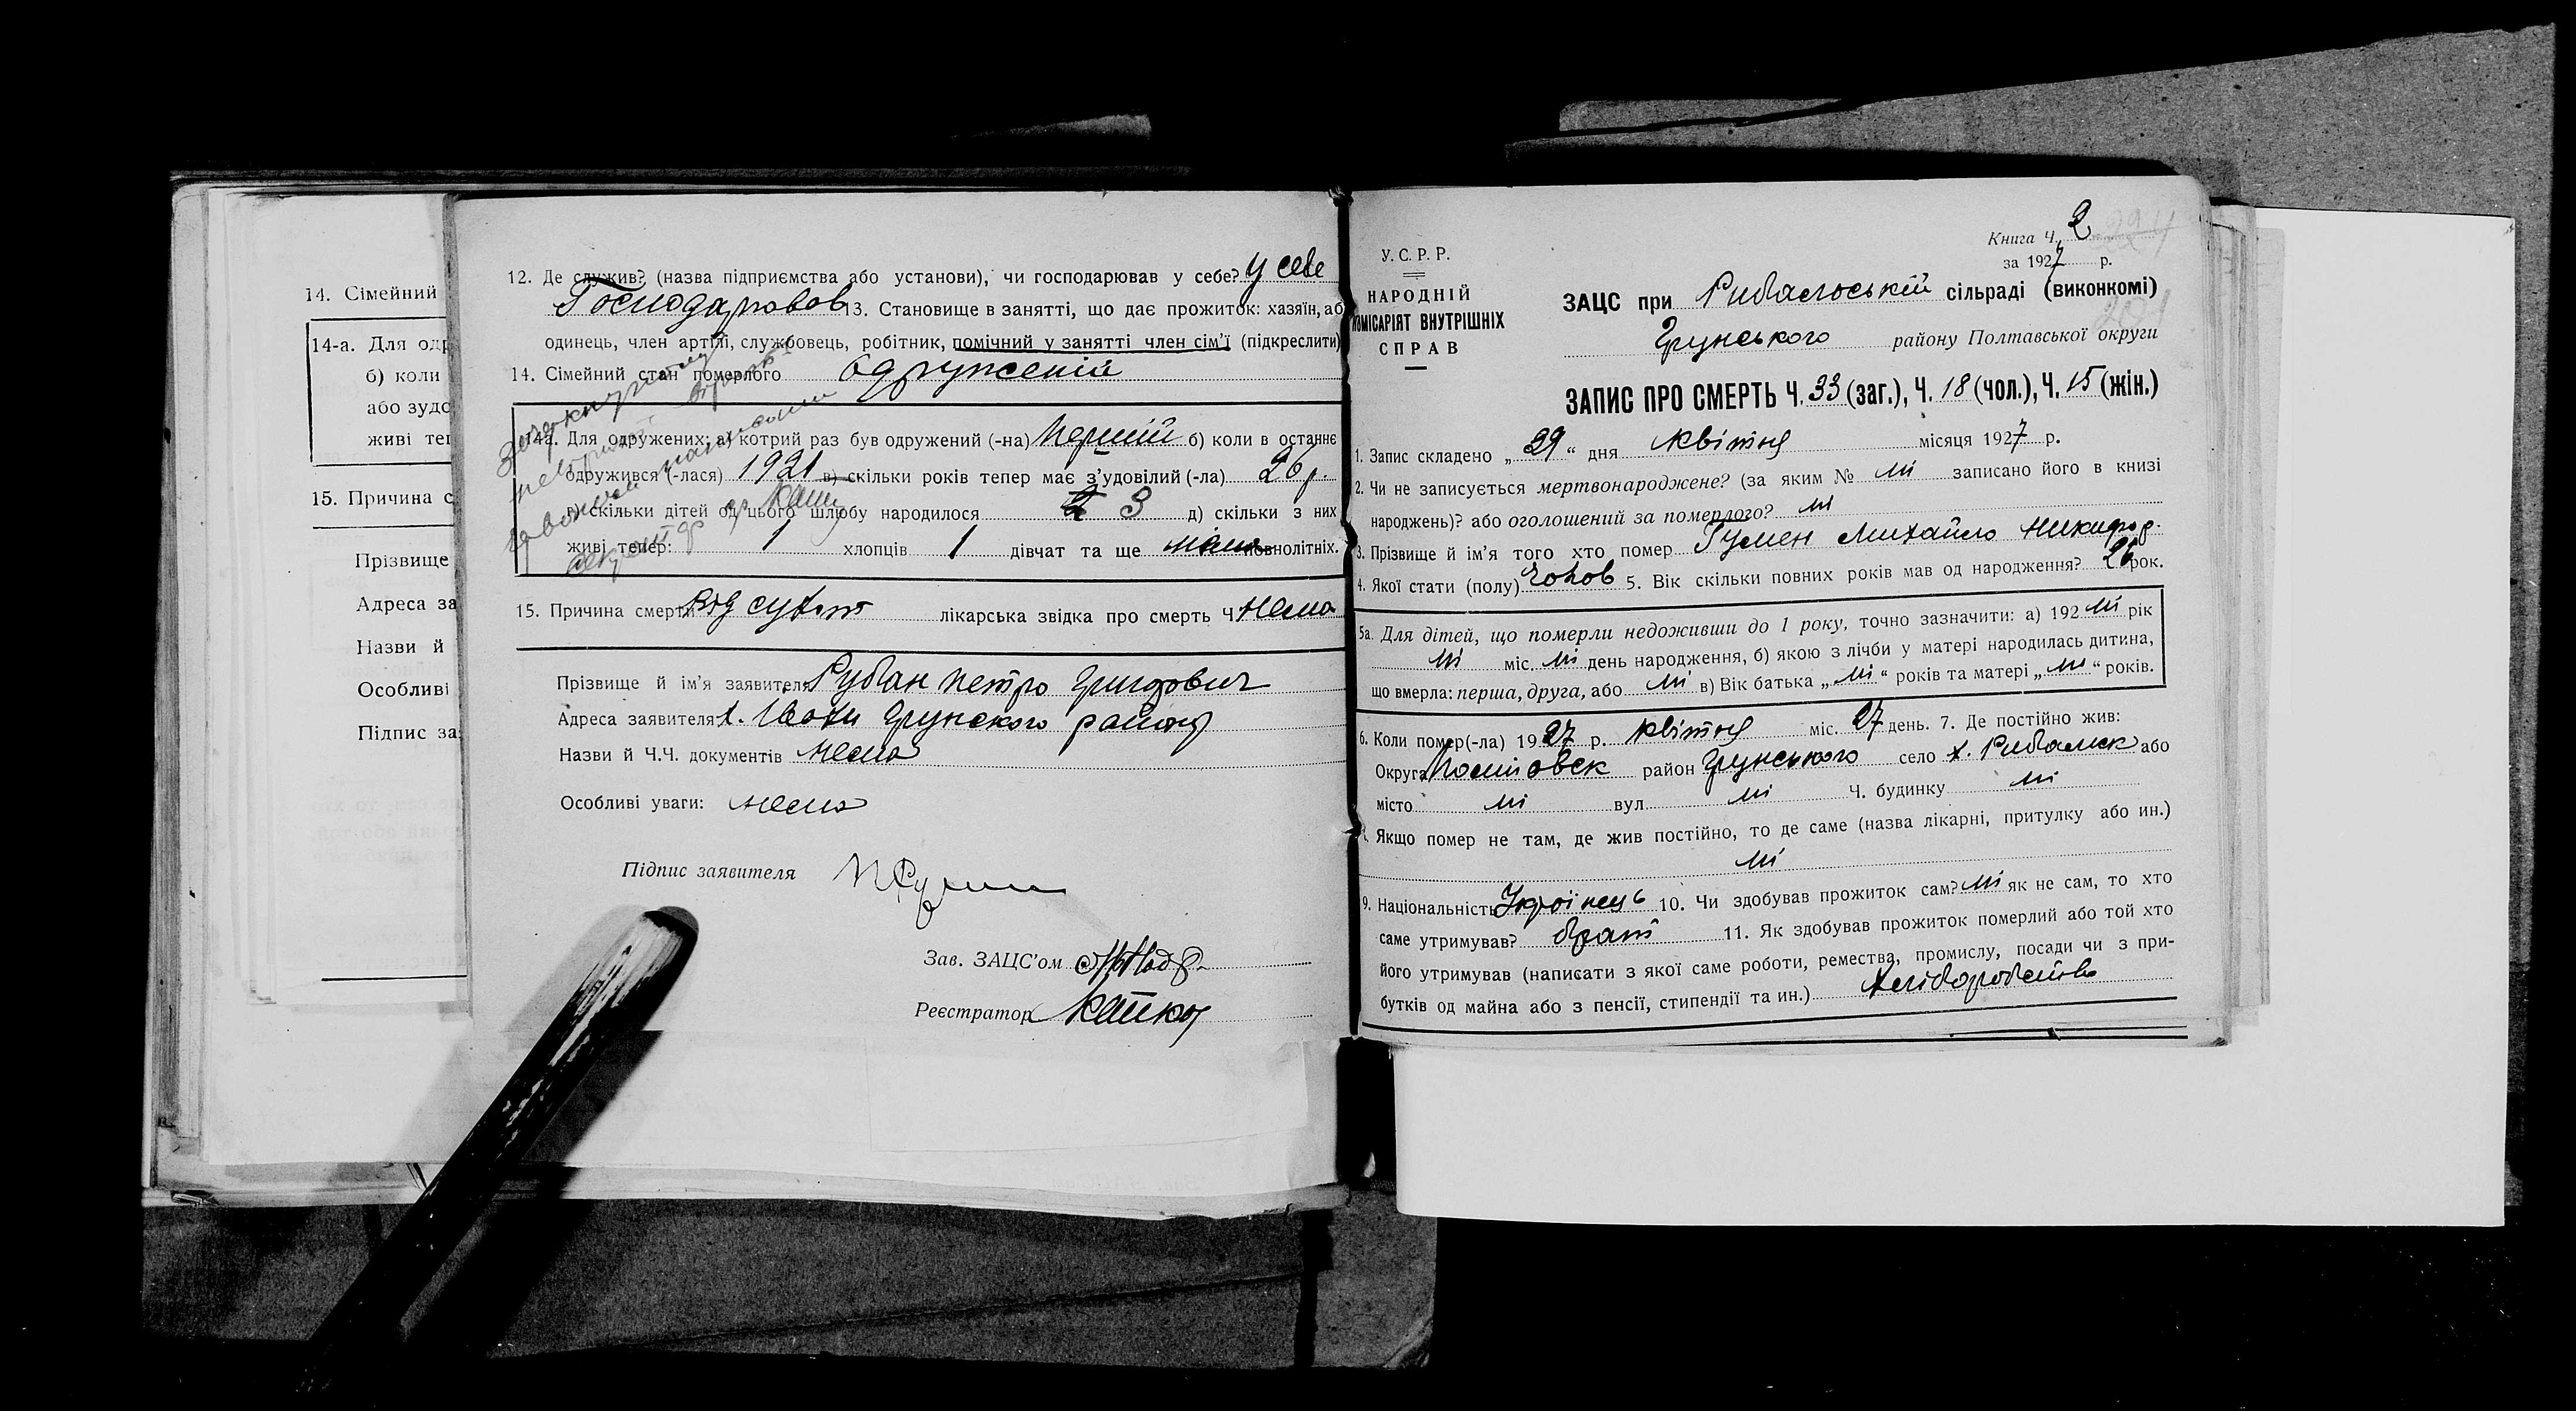 14. Сімейний
14-а. Для одр
б) коли
або зудо
живі теп
15. Причина с
Прізвище
Адреса за
Назви й
Особливі
Підпис за
12. Де служив? (назва підприємства або установи), чи господарював у себе? у себе
Господаровов 13. Становище в занятті, що дає прожиток: хазяїн, або
одинець, член артілі, службовець, робітник, помічний у занятті член сім'ї (підкреслити)
14. Сімейний стан померлого одруженій
14а. Для одружених: а) котрий раз був одружений (-на) Перший б) коли в останнє
одружився (-лася) 1921 в) скільки років тепер має з'удовілий (-ла) 26 р.
г) скільки дітей од цього шлюбу народилося 3 д) скільки з них
живі тепер: 1 хлопців 1 дівчат та ще повнолітніх.
15. Причина смерти від сухот лікарська звідка про смерть Ч Нема
Прізвище й ім'я заявителя Рубан Петро Григорович
Адреса заявителя х. Грунского району
Назви й Ч.Ч. документів Нема
Особливі уваги: Нема
Підпис заявителя
Зав. ЗАЦС'ом
Реєстратор
У.С.Р.Р.
НАРОДНІЙ
КОМІСАРІЯТ ВНУТРІШНІХ
СПРАВ
Книга Ч. 2
за 1927 р.
ЗАЦС при Рибальській сільраді (виконкомі)
Грунського району Полтавської округи
ЗАПИС ПРО СМЕРТЬ Ч. 33 (заг.), Ч. 18 (чол.), Ч. 15 (жін.)
1. Запис складено „ 29 “ дня квітня місяця 1927 р.
2. Чи не записується мертвонароджене? (за яким № ні записано його в книзі
народжень)? або оголошений за померлого? ні
3. Прізвище й ім'я того хто помер Гумен Михайло Никифор.
4. Якої стати (полу) Чолов 5. Вік скільки повних років мав од народження? 26 рок.
5а. Для дітей, що померли недоживши до 1 року, точно зазначити: а) 192 ні рік
ні міс. ні день народження, б) якою з лічби у матері народилась дитина,
що вмерла: перша, друга, або ні в) Вік батька „ ні “ років та матері „ ні “ років.
6. Коли помер(-ла) 1927 р. квітня міс. 27 день. 7. Де постійно жив:
Округа район Грунського село х. Рибалск або
місто ні вул ні Ч. будинку ні
8. Якщо помер не там, де жив постійно, то де саме (назва лікарні, притулку або ин.)
ні
9. Національність Українець 10. Чи здобував прожиток сам? ні як не сам, то хто
саме утримував? брат 11. Як здобував прожиток померлий або той хто
його утримував (написати з якої саме роботи, ремества, промислу, посади чи з при-
бутків од майна або з пенсії, стипендії та ин.) хліборобство